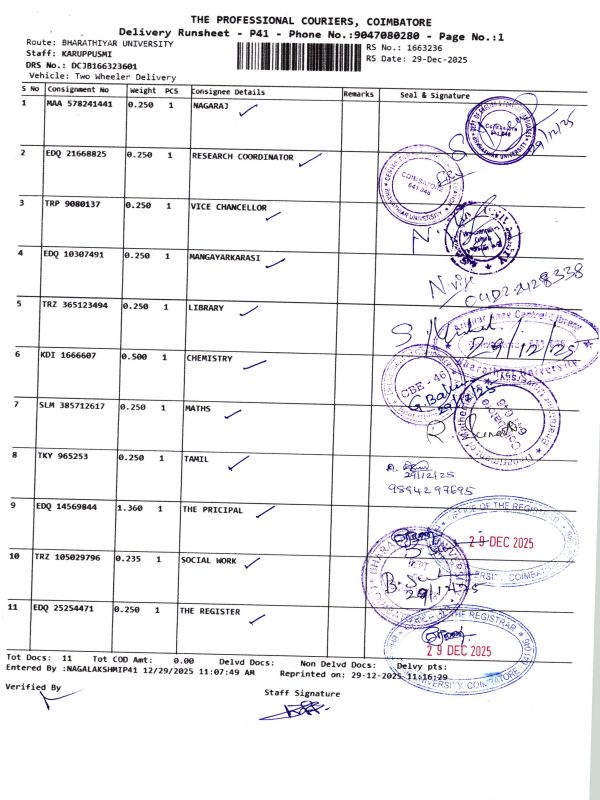 THE PROFESSIONAL COURIERS, COIMBATORE
Delivery Runsheet - P41 - Phone No.:9047080280 - Page No.:1
Route: BHARATHIYAR UNIVERSITY
RS No.: 1663236
Staff: KARUPPUSMI
RS Date: 29-Dec-2025
DRS No.: DCJB166323601
Vehicle: Two Wheeler Delivery
S No Consignment No Weight PCS Consignee Details Remarks Seal & Signature
1 MAA 578241441 0.250 1 NAGARAJ
29/12/25
2 EDQ 21668825 0.250 1 RESEARCH COORDINATOR
COIMBATORE 641 046
3 TRP 9080137 0.250 1 VICE CHANCELLOR
4 EDQ 10307491 0.250 1 MANGAYARKARASI
5 TRZ 365123494 0.250 1 LIBRARY
29/12/25
6 KDI 1666607 0.500 1 CHEMISTRY
CBE - 46
29/12/25
7 SLM 385712617 0.250 1 MATHS
8 TKY 965253 0.250 1 TAMIL
29/12/25
9894297695
9 EDQ 14569844 1.360 1 THE PRICIPAL
OFFICE OF THE REGISTRAR
29 DEC 2025
10 TRZ 105029796 0.235 1 SOCIAL WORK
29/12/25
11 EDQ 25254471 0.250 1 THE REGISTER
THE REGISTRAR
29 DEC 2025
UNIVERSITY COIMBATORE
Tot Docs: 11 Tot COD Amt: 0.00 Delvd Docs: Non Delvd Docs: Delvy pts:
Entered By :NAGALAKSHMIP41 12/29/2025 11:07:49 AM Reprinted on: 29-12-2025 11:16:29
Verified By
Staff Signature